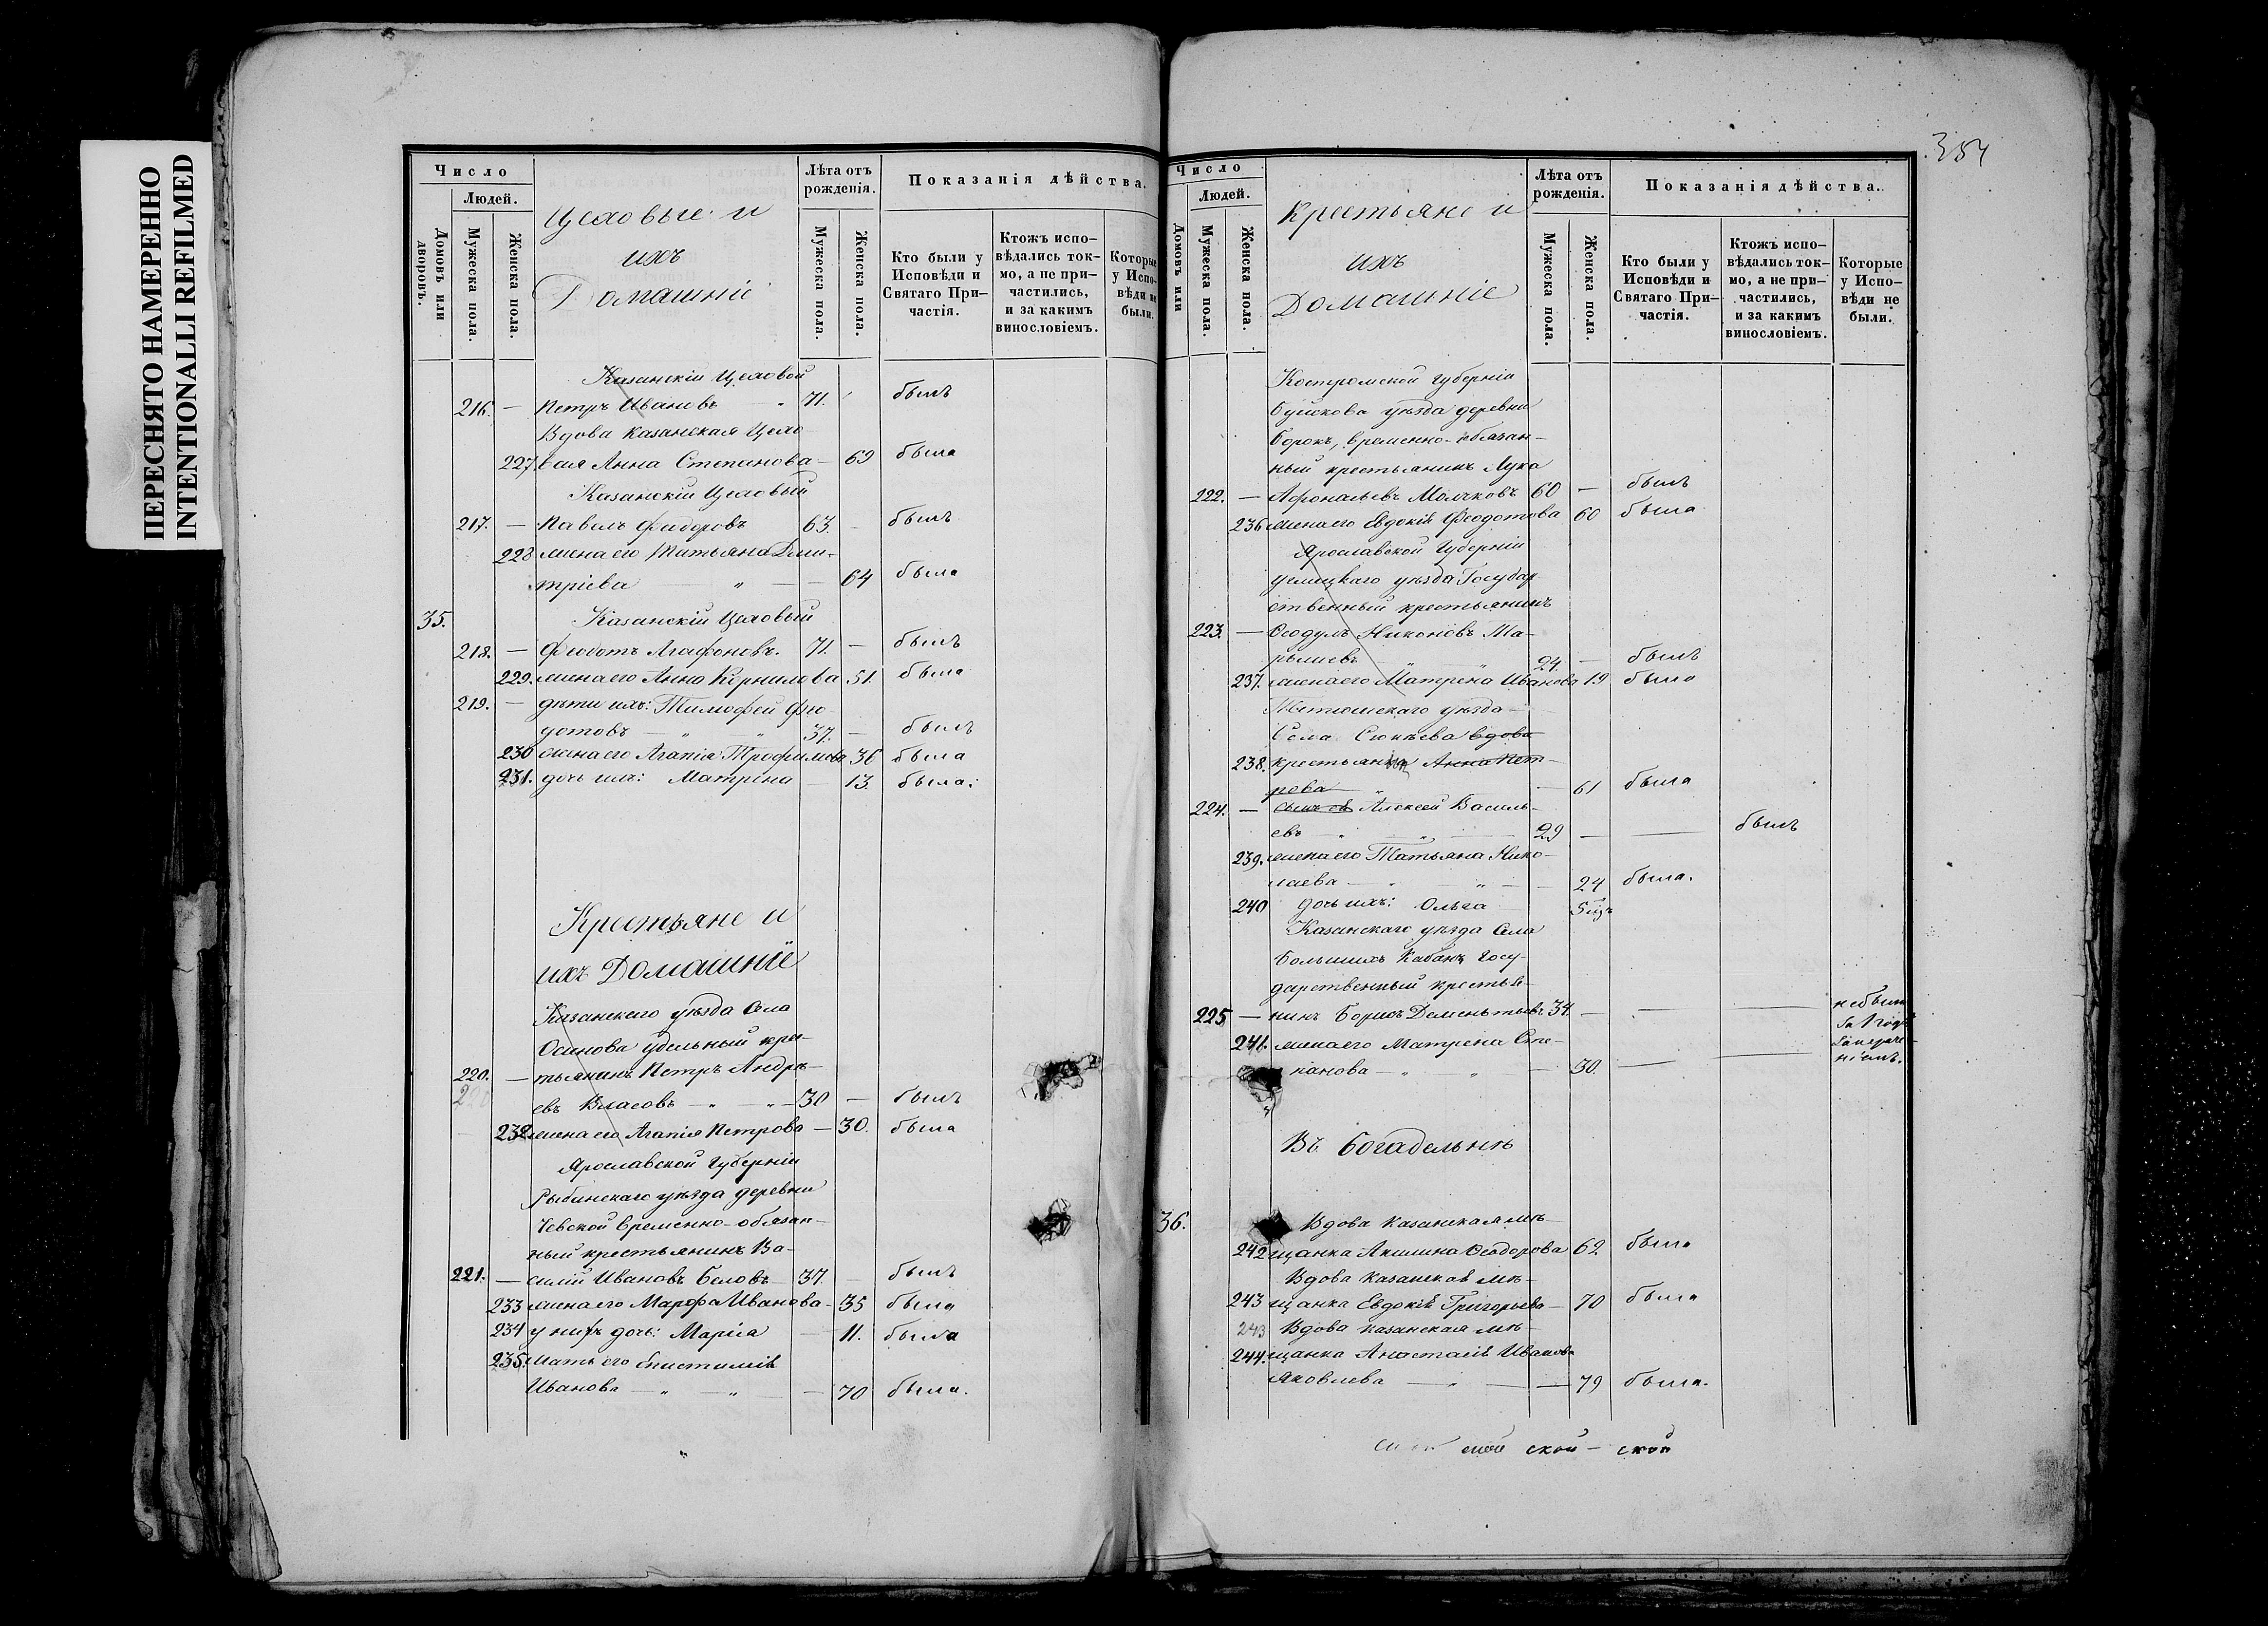 ПЕРЕСНЯТО НАМЕРЕННО
INTENTIONALLI REFILMED
Число
Людей.
Домовъ или дворовъ.
Мужеска пола.
Женска пола.
Цеховые и
ихъ
Домашніе
Лѣта отъ рожденія.
Мужеска пола.
Женска пола.
Показанія дѣйства.
Кто были у Исповѣди и Святаго Причастія.
Ктожъ исповѣдались токмо, а не причастились, и за какимъ винословіемъ.
Которые у Исповѣди не были.
Казанскій Цеховой
216. — Петръ Ивановъ — " 71. былъ
Вдова Казанская Цехо-
227. вая Анна Степанова — 69 была
Казанскій Цеховый
217. — Павелъ Фидоровъ 63. — былъ
228 жена его Татьяна Дми-
тріева — " — 64 была
35. Казанскій Цеховый
218. — Федотъ Агафоновъ. 71. — былъ
229. жена его Анна Корнилова 51. была
219. — дѣти ихъ: Тимофей Фе-
дотовъ — " " 37. — былъ
230 жена его Агапія Трофимова 36 была
231. дочь ихъ: Матрена — 13. была:
Крестьяне и
ихъ Домашніе
Казанскаго уѣзда Села
Осинова удельный крес-
220. — тьянинъ Петръ Андре-
евъ Власовъ — " — " — 30 — былъ
232 жена его Агапія Петрова — 30. была
Ярославской Губерніи
Рыбинскаго уѣзда деревни
временно-обязан-
ный крестьянинъ Ва-
221. — силій Ивановъ Беловъ — 37. — былъ
233 жена его Марфа Иванова — 35 была
234 у нихъ дочь: Марія — 11. была
235. Мать его Епистимія
Иванова — " — " — 70 была.
354
Число
Людей.
Домовъ или
Мужеска пола.
Женска пола.
Крестьяне и
ихъ
Домашніе
Лѣта отъ рожденія.
Мужеска пола.
Женска пола.
Показанія дѣйства.
Кто были у Исповѣди и Святаго Причастія.
Ктожъ исповѣдались токмо, а не причастились, и за какимъ винословіемъ.
Которые у Исповѣди не были.
Костромской Губерніи
Буйскова уѣзда деревни
Борокъ, временно-обязан-
ный крестьянинъ Лука
222. — Афонасьевъ 60 — былъ
236 жена его Евдокія Феодотова 60 была
Ярославской Губерніи
углицкаго уѣзда Государ
ственный крестьянинъ
223. — Ѳеодулъ Никоновъ Ма-
24. — былъ
237. жена его Матрена Иванова 19 была
Тетюшскаго уѣзда —
Села Сюкѣева вдова
238. крестьянка Анна Пет-
рова — " — 61 была
224. — сынъ ея Алексей Василь-
евъ — " — " — 29 — — былъ
239. жена его Татьяна Нико-
лаева — " — " — 24 была.
240 дочь ихъ: Ольга
Казанскаго уѣзда Села
Большихъ Кабанъ Госу-
дарственный крестья-
225 — нинъ Борисъ Дементьевъ 34. — — — небыли
241. жена его Матрена Сте-
панова — " " — 30. — —
Въ богадельнѣ
36. Вдова Казанская мѣ-
242 щанка Акилина Ѳеодорова 62 была
Вдова Казанская мѣ-
243 щанка Евдокія Григорьева — 70 была
243 Вдова Казанская мѣ-
244. щанка Анастасія Иванова
Яковлева — " — — 79 была.
ской — ской